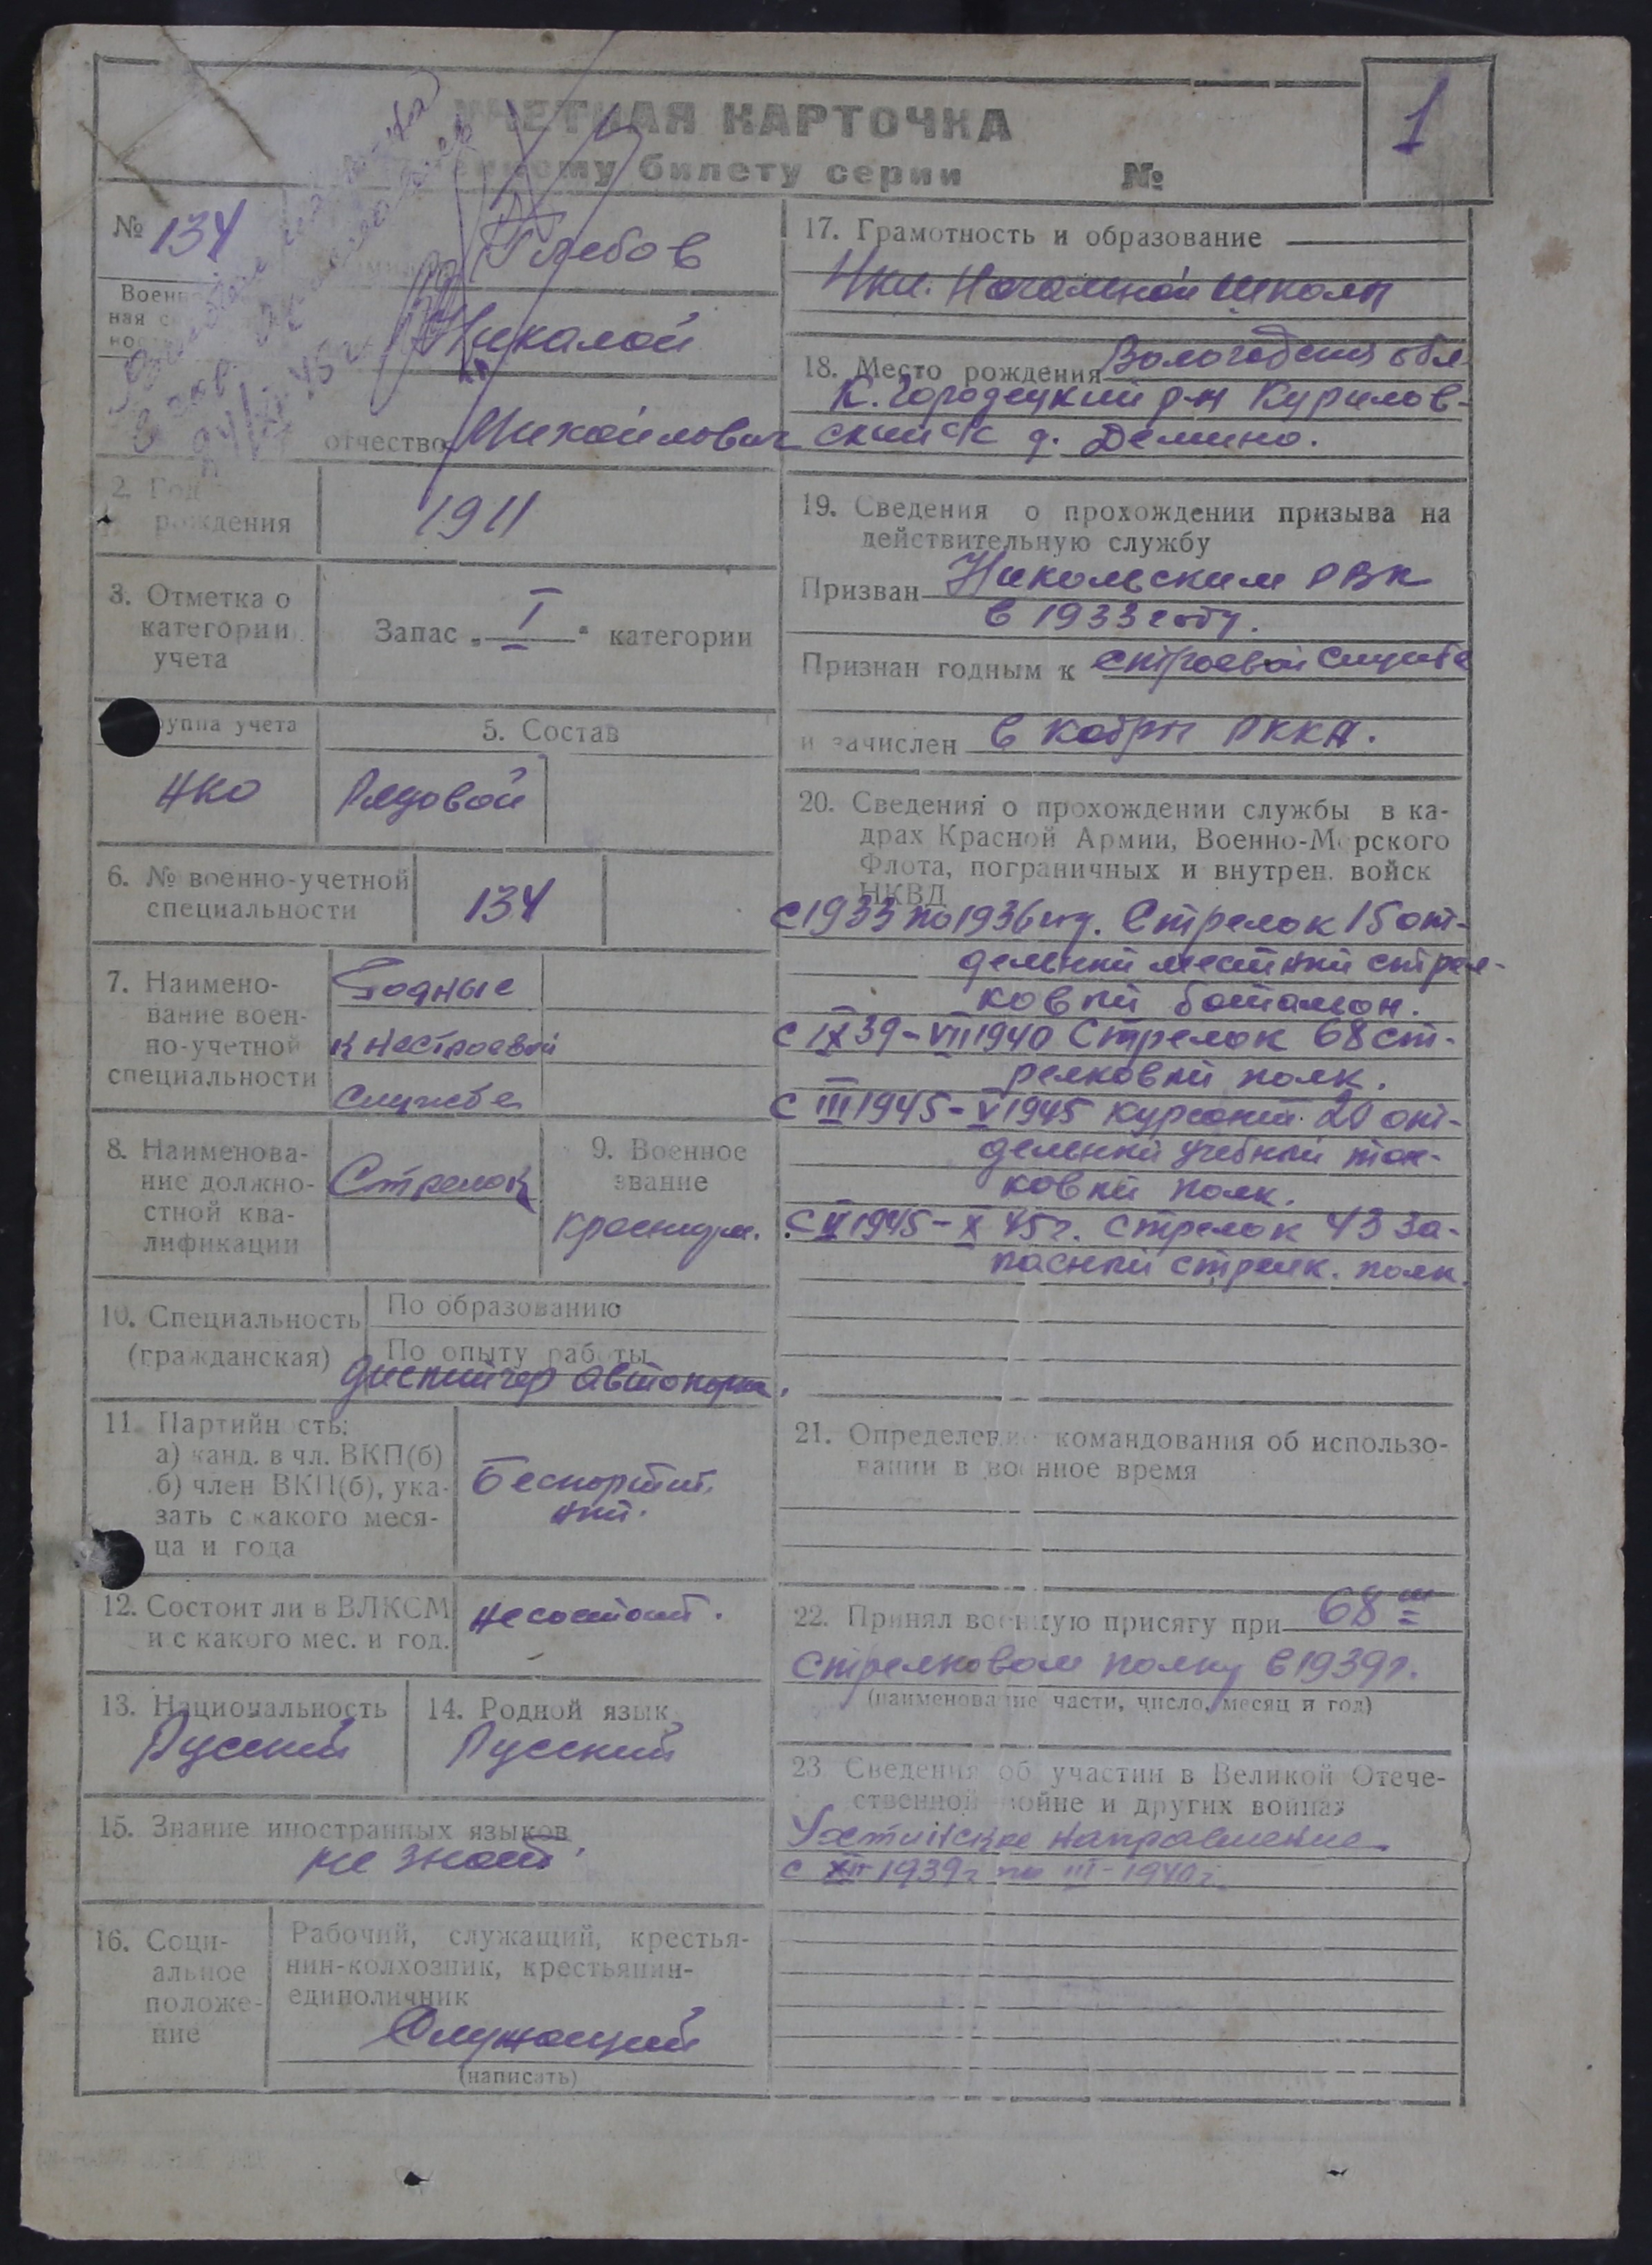 УЧЕТНАЯ КАРТОЧКА
билету серии №
1
№ 134
Глебов
Николой
отчество Михойлович
2. Год
рождения
1911
3. Отметка о
категории
учета
Запас „ I " категории
уппа учета
НКО
5. Состав
Рядовой
6. № военно-учетной
специальности
134
7. Наимено-
вание воен-
но-учетной
специальности
Годные
к нестроевой
службе
8. Наименова-
ние должно-
стной ква-
лификации
Стрелок
9. Военное
звание
Красноарм.
10. Специальность
(гражданская)
По образованию
По опыту работы
диспитчер автопарка.
11. Партийн сть:
а) канд. в чл. ВКП(б)
б) член ВКП(б), ука-
зать с какого меся-
ца и года
Беспортий.
ный.
12. Состоит ли в ВЛКСМ
и с какого мес. и год.
не состоит.
13. Национальность
Русский
14. Родной язык
Русский
15. Знание иностранных языков
не знает.
16. Соци-
альное
положе-
ние
Рабочий, служащий, крестья-
нин-колхозник, крестьянин-
единоличник
Служощий
(написать)
17. Грамотность и образование
4 кл. Начальной школы
18. Место рождения Вологодския обл
К. Городецкий р-н Курилов-
ский с/с д. Демино.
19. Сведения о прохождении призыва на
действительную службу
Призван Никольским РВК
в 1933 году.
Признан годным к строевой службе
и зачислен в кадры РККА.
20. Сведения о прохождении службы в ка-
драх Красной Армии, Военно-Морского
Флота, пограничных и внутрен. войск
НКВД
с 1933 по 1936 год. Стрелок 15 от-
дельный местный стрел-
ковый батальон.
с IX 39 - VII 1940 Стрелок 68 ст-
релковый полк.
с III 1945 - V 1945 курсант 20 от-
дельный учебный тан-
ковый полк.
с V 1945 - X 45г. стрелок 43 за-
пасный стрелк. полк.
21. Определение командования об использо-
вании в военное время
22. Принял военную присягу при 68 м
стрелковом полку в 1939г.
(наименование части, число, месяц и год)
23. Сведения об участии в Великой Отече-
ственной войне и других войнах
Ухтинское направление
с XII 1939г по III-1940г.